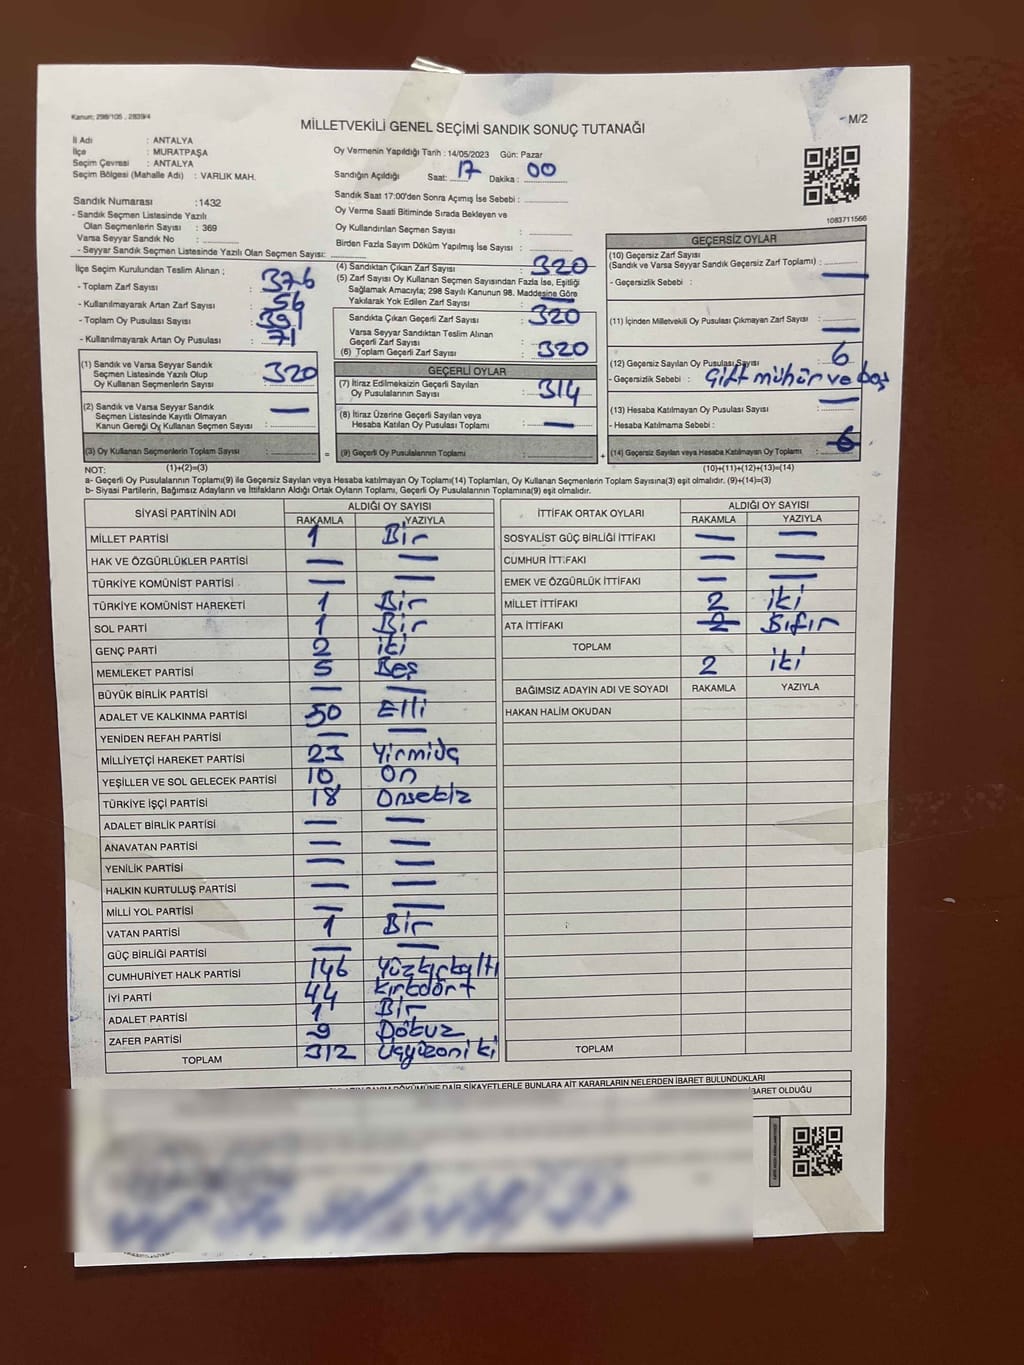 Kanun: 298/105 , 2839/4
MİLLETVEKİLİ GENEL SEÇİMİ SANDIK SONUÇ TUTANAĞI
M/2
İl Adı : ANTALYA
İlçe : MURATPAŞA
Seçim Çevresi : ANTALYA
Seçim Bölgesi (Mahalle Adı) : VARLIK MAH.
Oy Vermenin Yapıldığı Tarih : 14/05/2023 Gün: Pazar
Sandığın Açıldığı Saat: 17 Dakika : 00
Sandık Saat 17:00'den Sonra Açımış İse Sebebi :
Oy Verme Saati Bitiminde Sırada Bekleyen ve
Oy Kullandırılan Seçmen Sayısı :
Birden Fazla Sayım Döküm Yapılmış İse Sayısı :
1083711566
Sandık Numarası : 1432
- Sandık Seçmen Listesinde Yazılı
Olan Seçmenlerin Sayısı : 369
Varsa Seyyar Sandık No :
- Seyyar Sandık Seçmen Listesinde Yazılı Olan Seçmen Sayısı:
İlçe Seçim Kurulundan Teslim Alınan ;
- Toplam Zarf Sayısı : 376
- Kullanılmayarak Artan Zarf Sayısı : 56
- Toplam Oy Pusulası Sayısı : 391
- Kullanılmayarak Artan Oy Pusulası : 71
(1) Sandık ve Varsa Seyyar Sandık
Seçmen Listesinde Yazılı Olup
Oy Kullanan Seçmenlerin Sayısı : 320
(2) Sandık ve Varsa Seyyar Sandık
Seçmen Listesinde Kayıtlı Olmayan
Kanun Gereği Oy Kullanan Seçmen Sayısı : —
(3) Oy Kullanan Seçmenlerin Toplam Sayısı :
(4) Sandıktan Çıkan Zarf Sayısı : 320
(5) Zarf Sayısı Oy Kullanan Seçmen Sayısından Fazla İse, Eşitliği
Sağlamak Amacıyla; 298 Sayılı Kanunun 98. Maddesine Göre
Yakılarak Yok Edilen Zarf Sayısı : —
Sandıkta Çıkan Geçerli Zarf Sayısı : 320
Varsa Seyyar Sandıktan Teslim Alınan
Geçerli Zarf Sayısı :
(6) Toplam Geçerli Zarf Sayısı : 320
GEÇERLİ OYLAR
(7) İtiraz Edilmeksizin Geçerli Sayılan
Oy Pusulalarının Sayısı : 314
(8) İtiraz Üzerine Geçerli Sayılan veya
Hesaba Katılan Oy Pusulası Toplamı : —
= (9) Geçerli Oy Pusulalarının Toplamı :
GEÇERSİZ OYLAR
(10) Geçersiz Zarf Sayısı
(Sandık ve Varsa Seyyar Sandık Geçersiz Zarf Toplamı) :
- Geçersizlik Sebebi : —
(11) İçinden Milletvekili Oy Pusulası Çıkmayan Zarf Sayısı : —
(12) Geçersiz Sayılan Oy Pusulası Sayısı : 6
- Geçersizlik Sebebi : Çift mühür ve boş
(13) Hesaba Katılmayan Oy Pusulası Sayısı : —
- Hesaba Katılmama Sebebi :
+ (14) Geçersiz Sayılan veya Hesaba Katılmayan Oy Toplamı : 6
NOT: (1)+(2)=(3) (10)+(11)+(12)+(13)=(14)
a- Geçerli Oy Pusulalarının Toplamı(9) ile Geçersiz Sayılan veya Hesaba katılmayan Oy Toplamı(14) Toplamları, Oy Kullanan Seçmenlerin Toplam Sayısına(3) eşit olmalıdır. (9)+(14)=(3)
b- Siyasi Partilerin, Bağımsız Adayların ve İttifakların Aldığı Ortak Oyların Toplamı, Geçerli Oy Pusulalarının Toplamına(9) eşit olmalıdır.
SİYASİ PARTİNİN ADI ALDIĞI OY SAYISI
RAKAMLA YAZIYLA
MİLLET PARTİSİ 1 Bir
HAK VE ÖZGÜRLÜKLER PARTİSİ — —
TÜRKİYE KOMÜNİST PARTİSİ — —
TÜRKİYE KOMÜNİST HAREKETİ 1 Bir
SOL PARTİ 1 Bir
GENÇ PARTİ 2 iki
MEMLEKET PARTİSİ 5 Beş
BÜYÜK BİRLİK PARTİSİ — —
ADALET VE KALKINMA PARTİSİ 50 Elli
YENİDEN REFAH PARTİSİ — —
MİLLİYETÇİ HAREKET PARTİSİ 23 Yirmiüç
YEŞİLLER VE SOL GELECEK PARTİSİ 10 On
TÜRKİYE İŞÇİ PARTİSİ 18 Onsekiz
ADALET BİRLİK PARTİSİ — —
ANAVATAN PARTİSİ — —
YENİLİK PARTİSİ — —
HALKIN KURTULUŞ PARTİSİ — —
MİLLİ YOL PARTİSİ — —
VATAN PARTİSİ 1 Bir
GÜÇ BİRLİĞİ PARTİSİ — —
CUMHURİYET HALK PARTİSİ 146 Yüzkırkaltı
İYİ PARTİ 44 Kırkdört
ADALET PARTİSİ 1 Bir
ZAFER PARTİSİ 9 Dokuz
TOPLAM 312 Üçyüzoniki
İTTİFAK ORTAK OYLARI ALDIĞI OY SAYISI
RAKAMLA YAZIYLA
SOSYALİST GÜÇ BİRLİĞİ İTTİFAKI — —
CUMHUR İTTİFAKI — —
EMEK VE ÖZGÜRLÜK İTTİFAKI — —
MİLLET İTTİFAKI 2 iki
ATA İTTİFAKI 2 Sıfır
TOPLAM 2 iki
BAĞIMSIZ ADAYIN ADI VE SOYADI RAKAMLA YAZIYLA
HAKAN HALİM OKUDAN
TOPLAM
SAYIM DÖKÜMÜNE DAİR ŞİKAYETLERLE BUNLARA AİT KARARLARIN NELERDEN İBARET BULUNDUKLARI
İBARET OLDUĞU